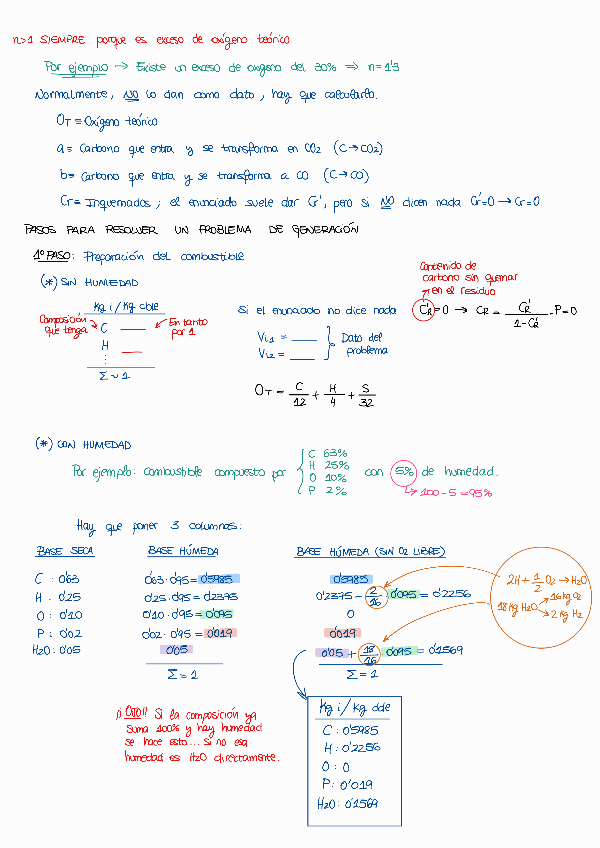 n>1 SIEMPRE porque es exceso de oxígeno teórico
Por ejemplo → Existe un exceso de oxígeno del 30% ⇒ n=1'3
Normalmente, NO lo dan como dato, hay que calcularlo.
OT = Oxígeno teórico
a = Carbono que entra y se transforma en CO2 (C→CO2)
b = Carbono que entra y se transforma a CO (C→CO)
Cr = Inquemados; el enunciado suele dar Cr', pero si NO dicen nada Cr'=0 → Cr=0
PASOS PARA RESOLVER UN PROBLEMA DE GENERACIÓN
1º PASO: Preparación del combustible
(*) SIN HUMEDAD
Kg i / Kg cble
Composición que tenga
C ___
En tanto por 1
H ___
⋮
Σ ~ 1
Si el enunciado no dice nada
Vi1 = ___
Vi2 = ___
Dato del problema
OT = C/12 + H/4 + S/32
Contenido de
carbono sin quemar
en el residuo
CR'=0 → CR = CR'/(1-CR') · P=0
(*) CON HUMEDAD
Por ejemplo: combustible compuesto por
C 63%
H 25%
O 10%
P 2%
con 5% de humedad.
↳ 100-5=95%
Hay que poner 3 columnas:
BASE SECA
C : 0'63
H : 0'25
O : 0'10
P : 0'02
H2O : 0'05
BASE HÚMEDA
0'63·0'95=0'5985
0'25·0'95=0'2375
0'10·0'95=0'095
0'02·0'95=0'019
0'05
Σ = 1
BASE HÚMEDA (SIN O2 LIBRE)
0'5985
0'2375 - 2/16 · 0'095 = 0'2256
0
0'019
0'05 + 18/16 0'095 = 0'1569
Σ = 1
2H + 1/2 O2 → H2O
18 Kg H2O
16 Kg O2
2 Kg H2
¡¡OJO!! Si la composición ya
suma 100% y hay humedad
se hace esto... Si no esa
humedad es H2O directamente.
Kg i / Kg cble
C : 0'5985
H : 0'2256
O : 0
P : 0'019
H2O : 0'1569